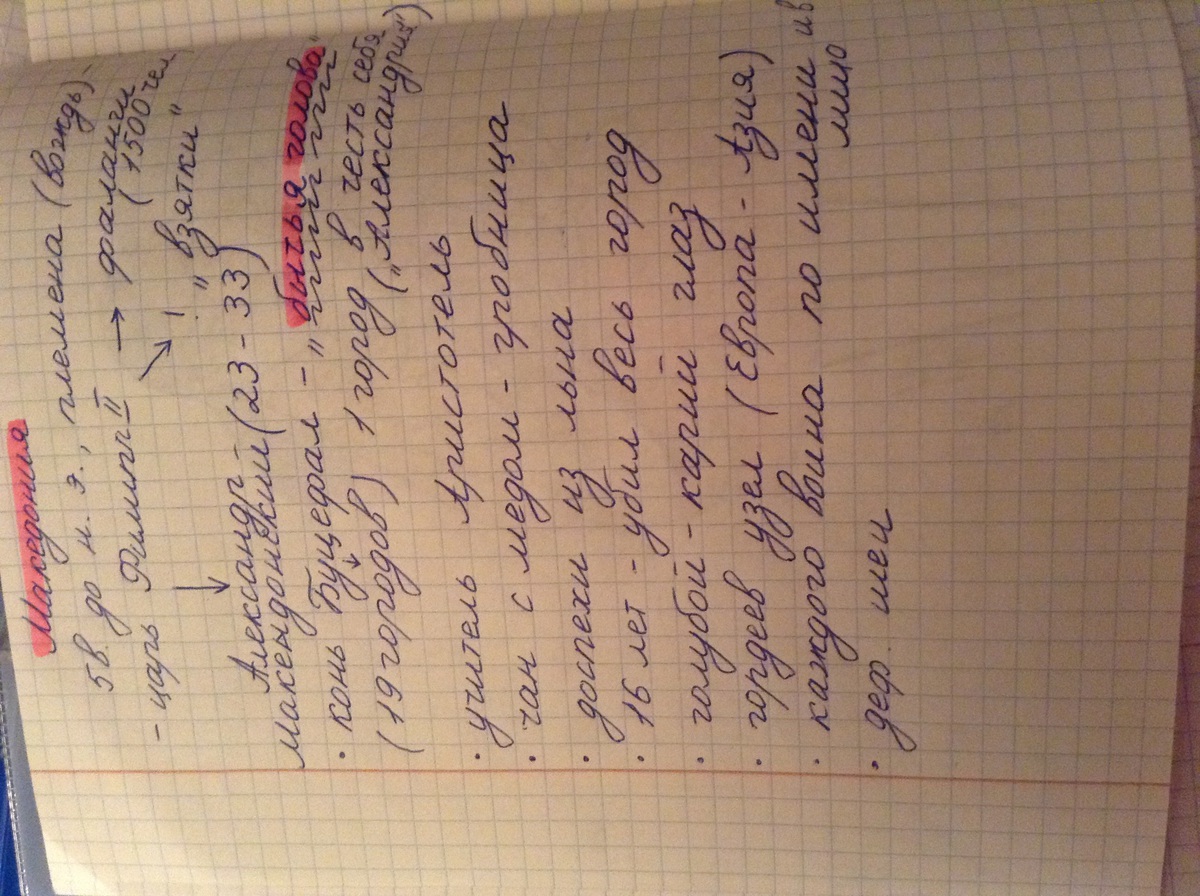 Македония
5в. до н. э., племена (вождь)-
- царь Филипп II → фаланги
(1500 чел
! "взятки"
Александр
Македонский (23 - 33)
• конь Буцефал - "бычья голова"
(19 городов) 1 город в честь себя
("Александрия")
• учитель Аристотель
• чан с медом - гробница
• доспехи из льна
• 16 лет - убил весь город
• голубой - карий глаз
• гордеев узел (Европа - Азия)
• каждого воина по имени и в
лицо
• деф. шеи